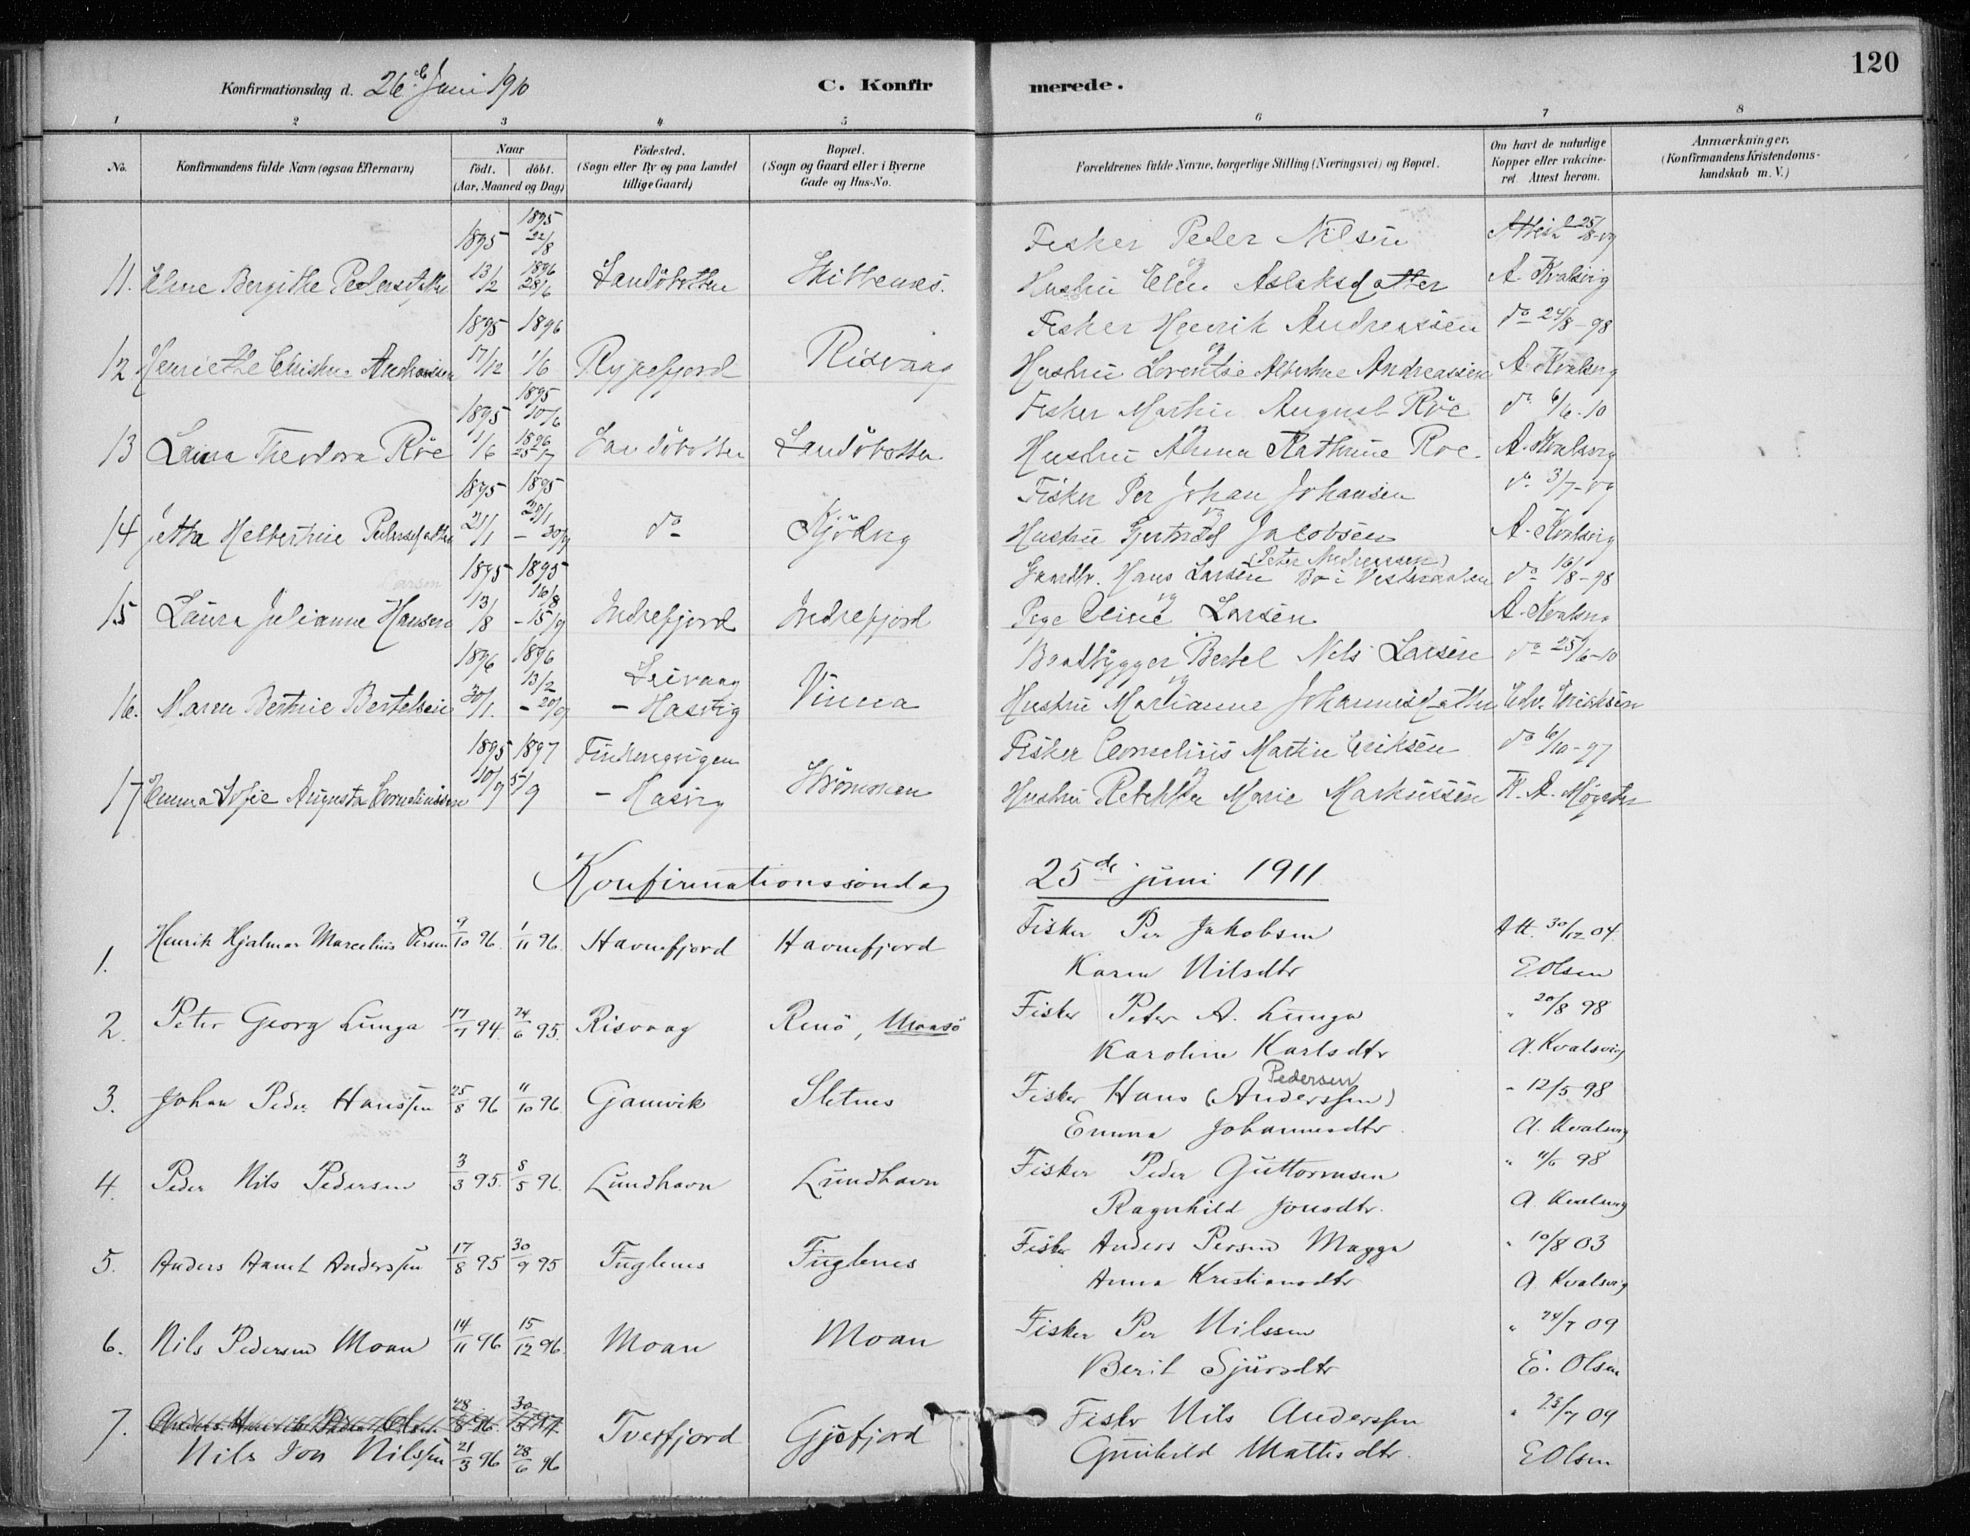 120
Konfirmationsdag d. 26de Juni 1910
C. Konfirmerede.
1 2 3 4 5 6 7 8
No.
Konfirmandens fulde Navn (ogsaa Efternavn)
Naar
født. døbt.
(Aar, Maaned og Dag)
Fødested.
(Sogn eller By og paa Landet
tillige Gaard)
Bopæl.
(Sogn og Gaard eller i Byerne
Gade og Hus-No.
Forældrenes fulde Navne, borgerlige Stilling (Næringsvei) og Bopæl.
Om havt de naturlige
Kopper eller vakcine-
ret. Attest herom.
Anmærkninger.
(Konfirmandens Kristendoms-
kundskab m. V.)
1895 1895 22/8 Fisker Peder Nilsen
11. Elene Bergithe Pedersdatter 13/2 1896 28/6 Sandöbotten Hustru Elen Aslaksdatter A. Kvalsvig
1895 1896 Fisker Henrik Andreassen do 24/8-98
12 Henriethe Andreassen 17/12 1/6 Rypefjord Risvaag Hustru Lorentse Albertine Andreassen A. Kvalsvig
1895 1895 10/6 Fisker Martin August Röe do 6/6-10
13 Laura Theodora Röe 1/6 1896 25/7 Sandöbotten Sandöbotten Hustru Anna Kathrine Roe. A. Kvalsvig
1895 1895 Fisker Per Johan Johansen do 3/7
14 Helbertine Pedersdatter 21/1 do Hustru Gjertrud Jacobsen A. Kvalsvig
1895 1895 Hans Larsen (Peter Andreassen) Bo i Vesteraalen do 16/8-98
15 Laura Julianne Hansen Larsen 13/8 16/8 - 15/9 Indrefjord Indrefjord Pige Eline Larsen A. Kvalsvig
1896 1896 13/2 Baadbygger Bertel Nils Larsen do 25/6-10
16. Maren Bertine Bertelsen 30/1. - 20/9 - Hasvig Vinna Hustru Marianne Johannesdatter Edv. Eriksen
1895 1897 Fisker Cornelius Martin Eriksen do 6/10-97
17 Emma Sofie Augusta Corneliussen 10/9 5/9 - Hasvig Strömmen Hustru Rebekka Marie Markussen K. A.
Konfirmationssöndag 25de juni 1911
1. Henrik Hjalmar Marcelius Persen 9/10 96. 1/11 96. Havnefjord Havnefjord Fisker Per Jakobsen Att. 30/12 04.
Karen Nilsdtr E Olsen
2. Peter Georg Lunga 94. 24/6 95. Risvaag Renö, Maasö Fisker Peter A. Lunga " 20/8 98
Karoline Karlsdtr A. Kvalsvig
3. Johan Peder Hanssen 25/8 96 11/10 96. Gamvik Sletnes Fisker Hans (Anderssen) Pedersen " 12/5 98
Emma Johannesdtr. A. Kvalsvig
4. Peder Nils Pedersen 3/3 95. 8/5 96. Lundhavn Lundhavn Fisker Peder Guttormsen " 11/6 98
Ragnhild Jonsdtr. A. Kvalsvig
5. Anders Aamt Anderssen 17/8 95 30/9 95 Fuglenes Fuglenes Fisker Anders Persen Magga " 10/8 03
Anna Kristiansdtr A. Kvalsvig
6. Nils Pedersen Moan 14/11 96 15/12 96. Moan Moan Fisker Per Nilssen " 24/7 09
Berit Sjursdtr E. Olsen
7. Tverfjord Gjöfjord Fisker Nils Anderssen " 23/7 09
Nils Jon Nilssen 21/3 96 28/6 96 Gunhild Mattisdtr. E Olsen